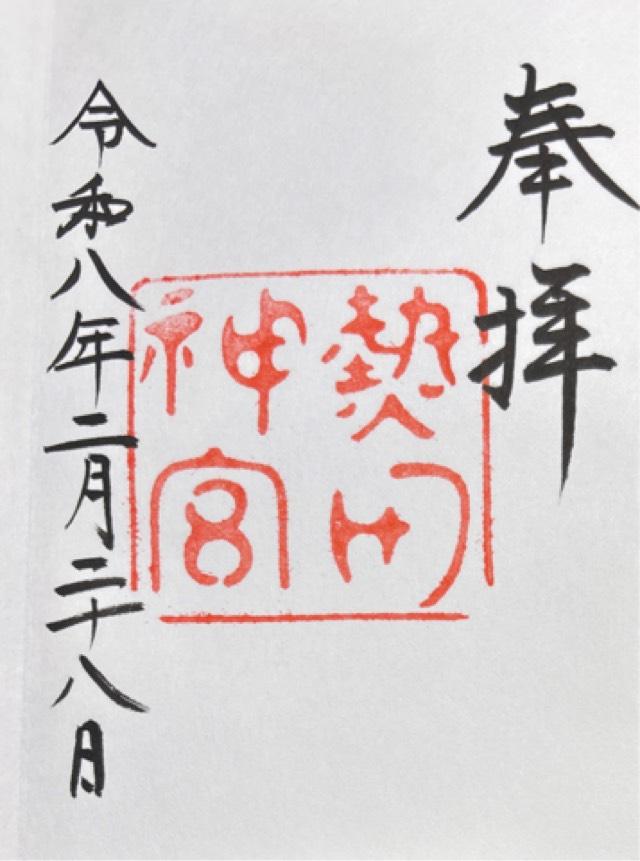 奉拝
熱田
神宮
令和八年二月二十八日